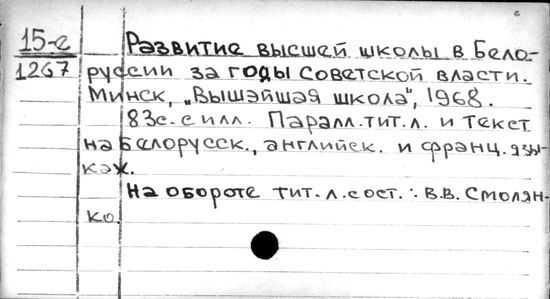 15-е Развитие высшей школы в Бело-
1267 руссии за годы Советской власти.
Минск, „Вышэйшая школа", 1968.
83с. с илл. Паралл. тит. л. и текст
на белорусск., английск. и франц. язы-
ках.
На обороте тит. л. сост.: В.В. Смолян-
ко.